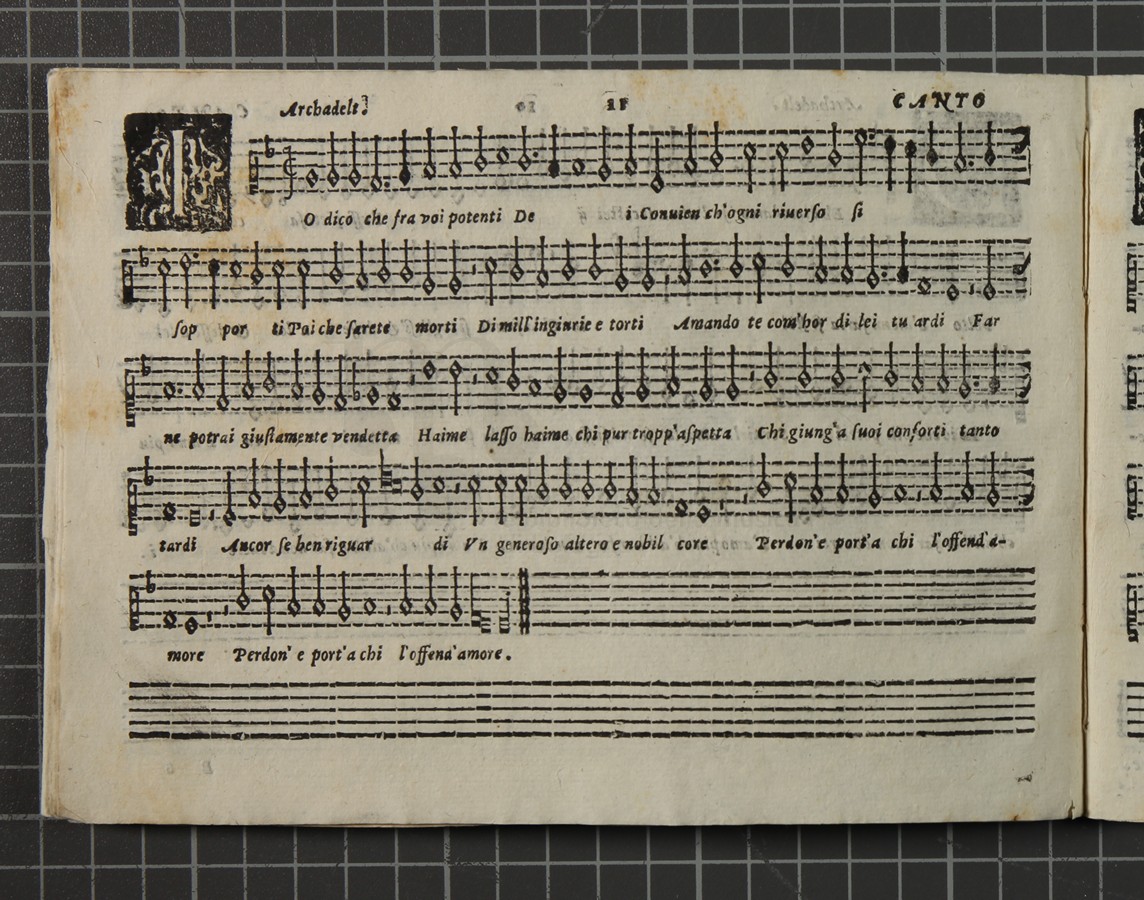 Archadelt. 11 CANTO
IO dico che fra voi potenti De i Conuien ch'ogni riuerſo ſi
ſop por ti Poi che ſarete morti Di mill'ingiurie e torti Amando te com'hor di lei tu ardi Far
ne potrai giuſtamente vendetta Haime laſſo haime chi pur tropp'aſpetta Chi giung'a ſuoi conforti tanto
tardi Ancor ſe ben riguar di Vn generoſo altero e nobil core Perdon'e port'a chi l'offend'a-
more Perdon' e port'a chi l'offend'amore.